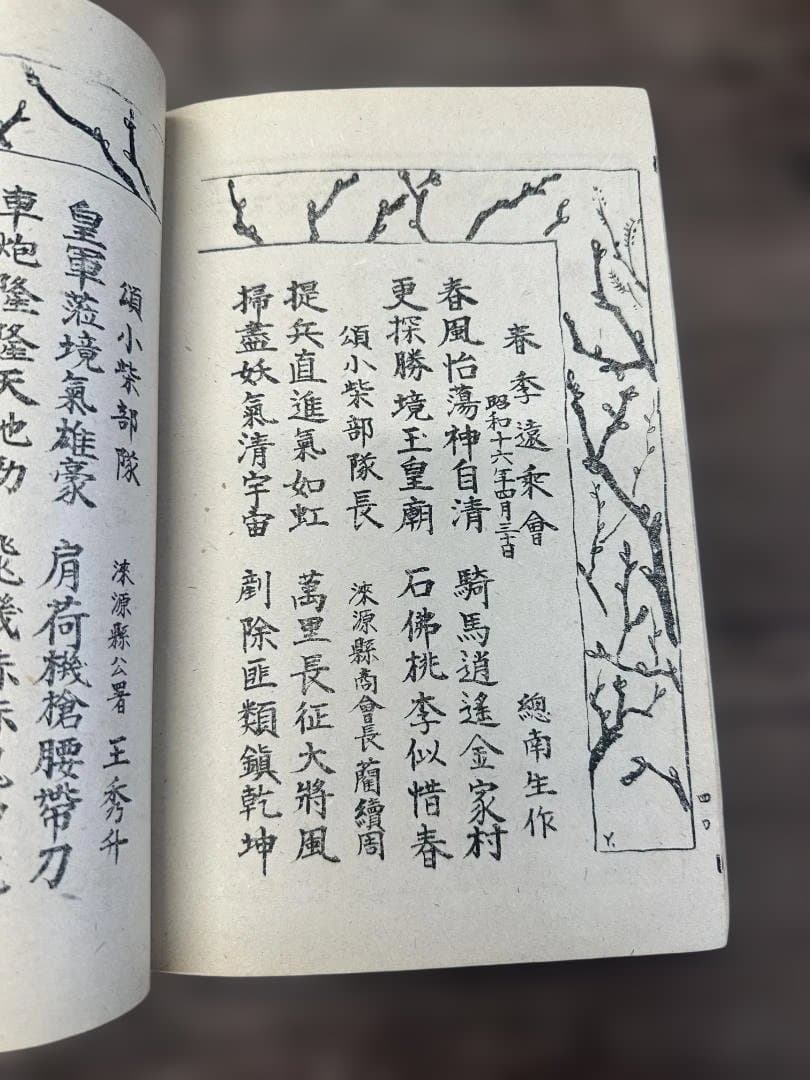 春季遠乘會　總南生作
昭和十六年四月三十日
春風怡蕩神自清　騎馬逍遙金家村
更探勝境玉皇廟　石佛桃李似惜春
頌小柴部隊長　淶源縣商會長　藺續周
提兵直進氣如虹　萬里長征大將風
掃盡妖氣清宇宙　剷除匪類鎮乾坤
四〇
Y.
頌小柴部隊　淶源縣公署　王秀升
皇軍蒞境氣雄豪　肩荷機槍腰帶刀
車炮隆隆天地動　飛機